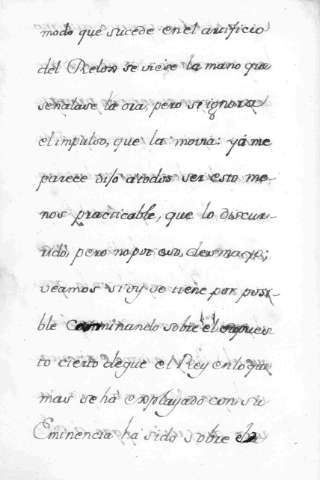 modo que sucede en el artificio
del Relox se viese la mano que
señalase la ora, pero se ignora
el impulso, que la movia: yá me
parece dijo atodos ser esto me-
nos practicable, que lo discur-
rido, pero no por eso, desmaye;
veamos si oy se tiene por posi-
ble caminando sobre el supues-
to cierto de que el Rey en lo que
mas se há explayado con su
Eminencia ha sido sobre